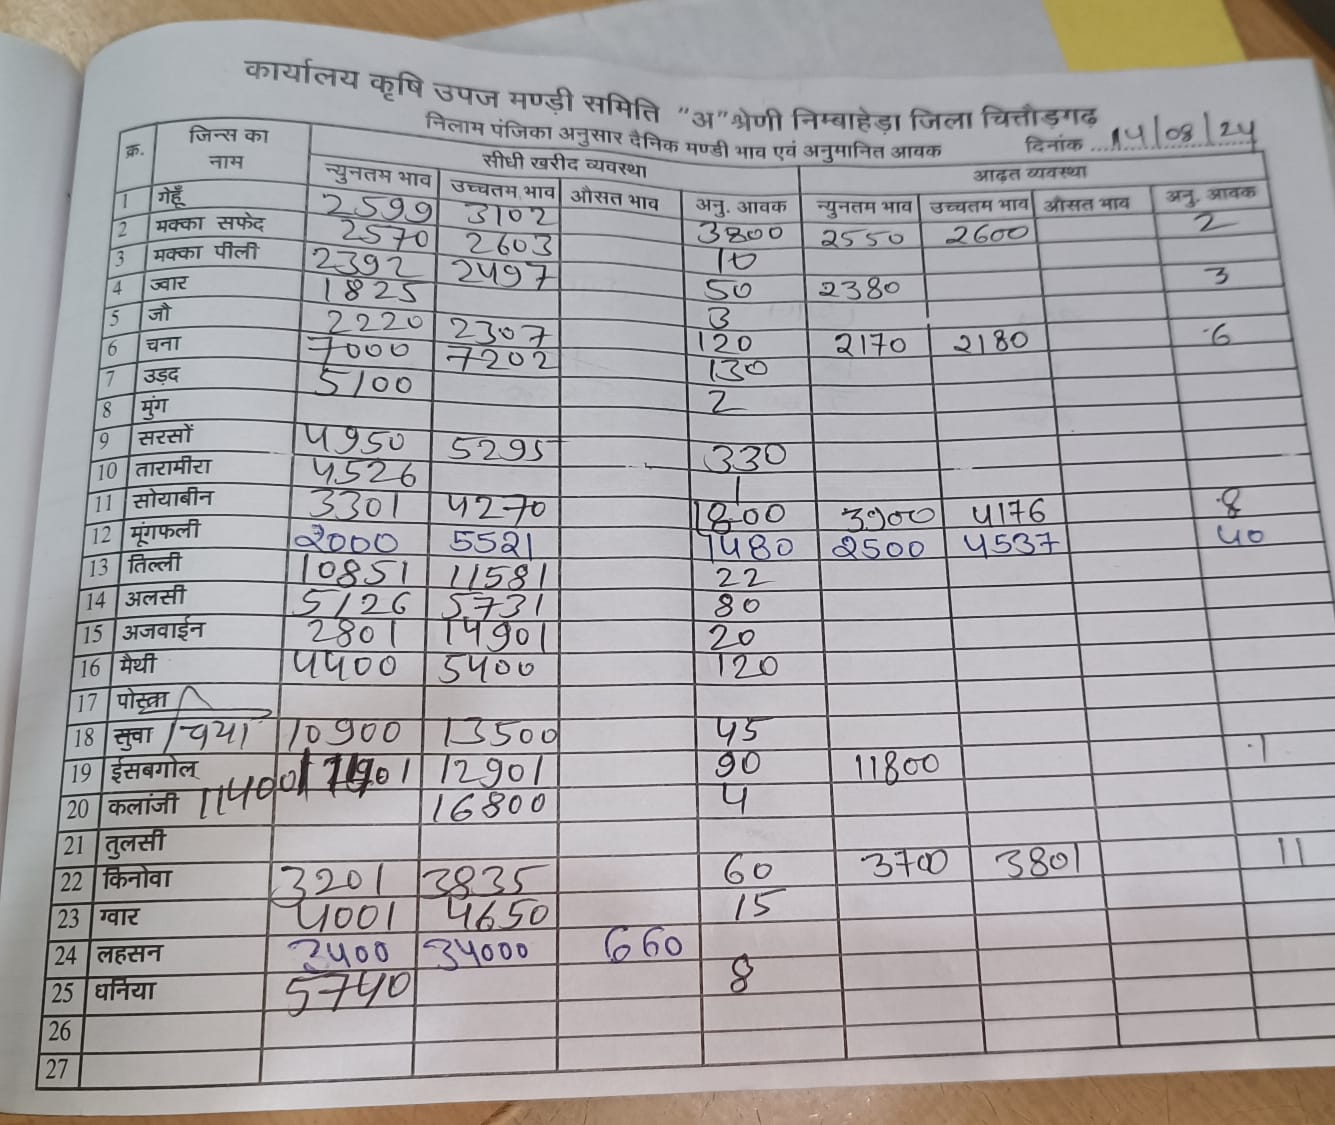 कार्यालय कृषि उपज मण्डी समिति "अ" श्रेणी निम्बाहेड़ा जिला चित्तौड़गढ़
निलाम पंजिका अनुसार दैनिक मण्डी भाव एवं अनुमानित आवक दिनांक ....14/08/24
क्र. जिन्स का नाम सीधी खरीद व्यवस्था आढ़त व्यवस्था
न्युनतम भाव उच्चतम भाव औसत भाव अनु. आवक न्युनतम भाव उच्चतम भाव औसत भाव अनु. आवक
1 गेहूँ 2599 3102 3800 2550 2600 2
2 मक्का सफेद 2570 2603 10
3 मक्का पीली 2392 2497 50 2380 3
4 ज्वार 1825 3
5 जौ 2220 2307 120 2170 2180 6
6 चना 7000 7202 130
7 उड़द 5100 2
8 मुंग
9 सरसों 4950 5295 330
10 तारामीरा 4526 1
11 सोयाबीन 3301 4270 1800 3900 4176 8
12 मूंगफली 2000 5521 1480 2500 4537 40
13 तिल्ली 10851 11581 22
14 अलसी 5126 5731 80
15 अजवाईन 2801 14901 20
16 मैथी 4400 5400 120
17 पोस्त्ता
18 सुवा 10900 13500 45
19 ईसबगोल 12901 90 11800 1
20 कलांजी 11400 16800 4
21 तुलसी
22 किनोवा 3201 3835 60 3700 3801 11
23 ग्वार 4001 4650 15
24 लहसन 3400 34000 660
25 धनिया 5740 8
26
27